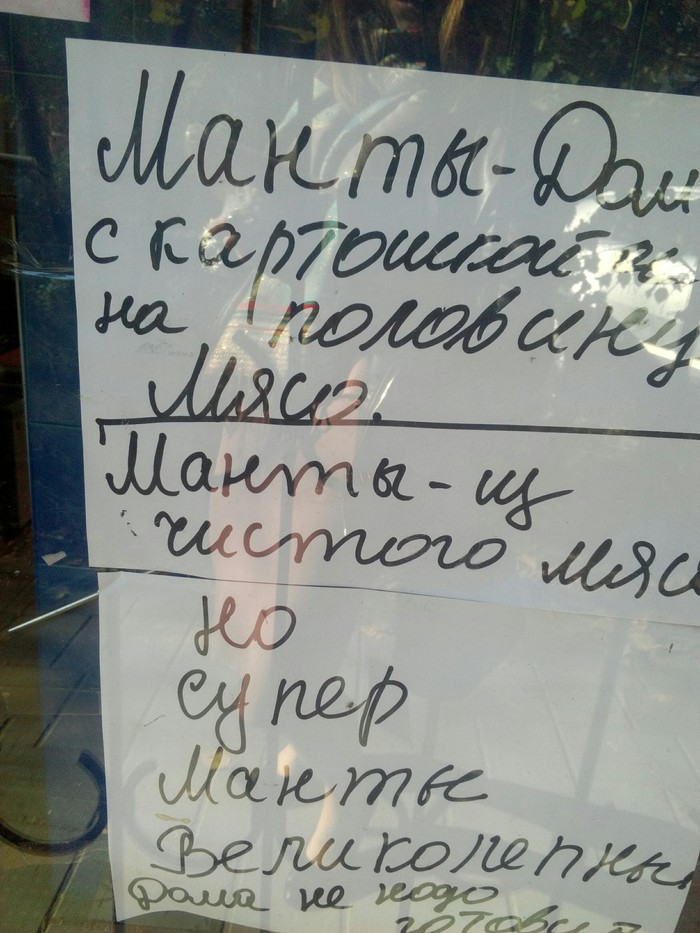 Манты-Дом
с картошкой и
на половину
мясо.
Манты-из
чистого мяса
но
супер
Манты
Великолепны
Дома не надо
готовит